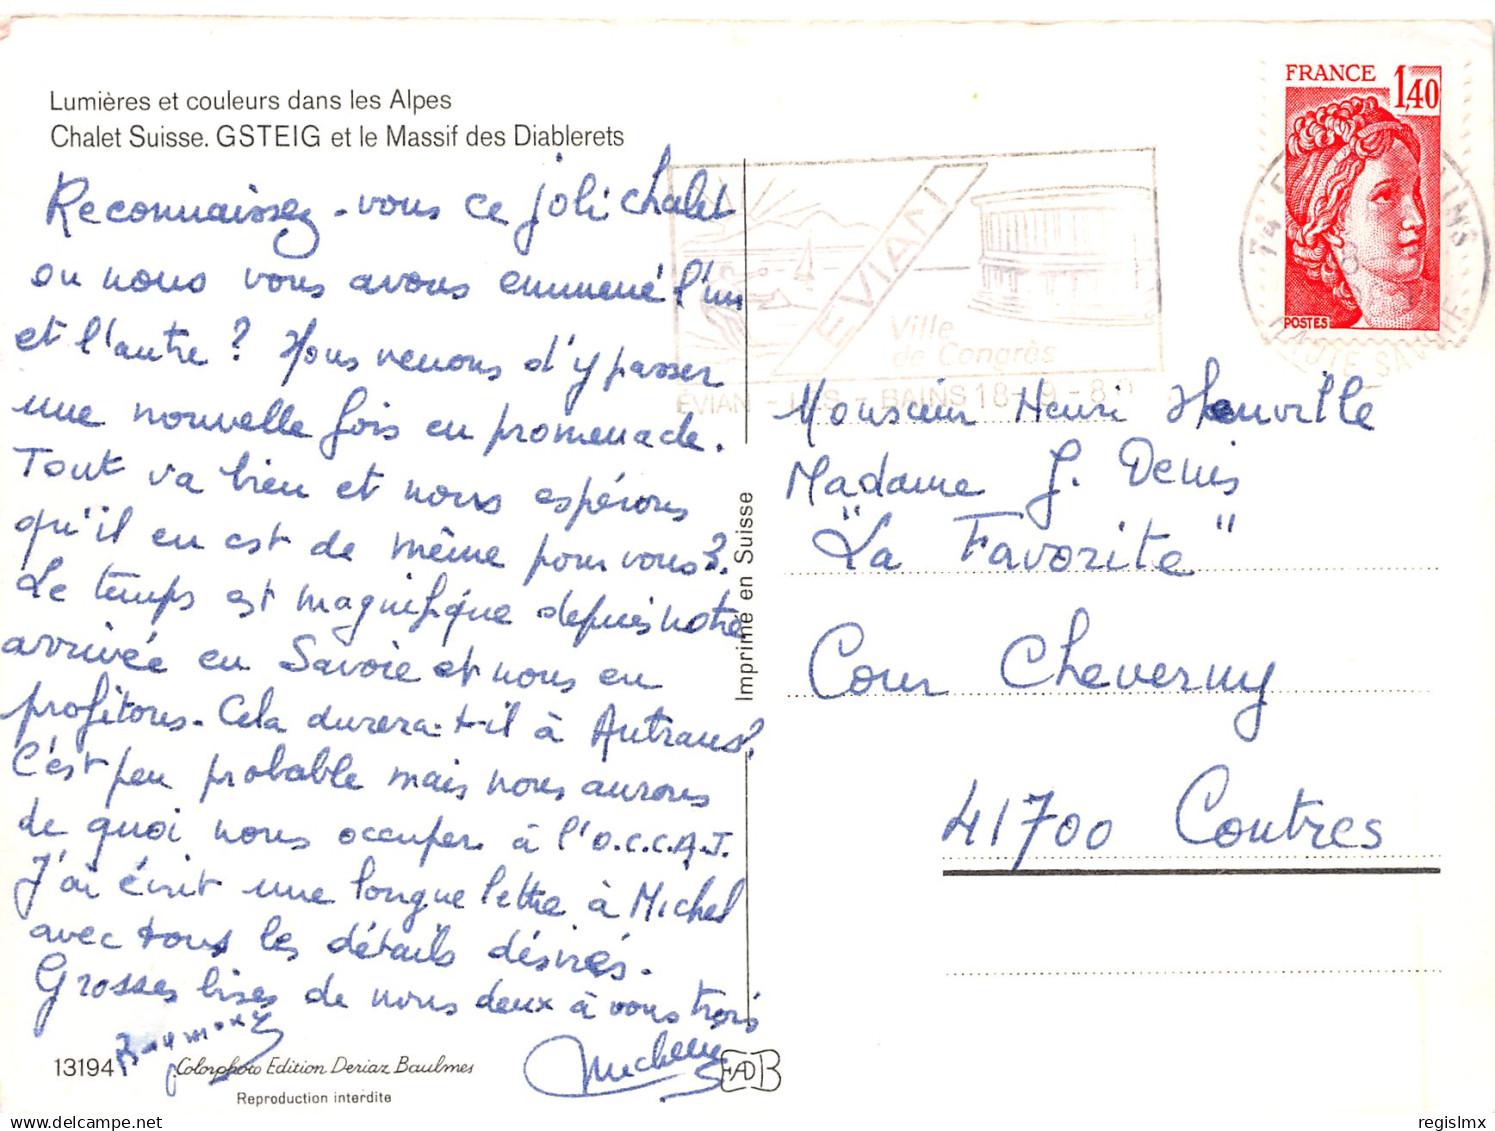 Lumières et couleurs dans les Alpes
Chalet Suisse. GSTEIG et le Massif des Diablerets
Reconnaissez-vous ce joli chalet
ou nous vous avons emmené l'un
et l'autre ? Nous venons d'y passer
une nouvelle fois en promenade.
Tout va bien et nous espérons
qu'il en est de même pour vous?.
Le temps est magnifique depuis notre
arrivée en Savoie et nous en
profitons. Cela durera-t-il à Autrans?
C'est peu probable mais nous aurons
de quoi nous occuper à l'O.C.C.A.J.
J'ai écrit une longue lettre à Michel
avec tous les détails désirés.
Grosses bises de nous deux à vous trois
Raymond
Micheline
13194
Colorphoto Edition Deriaz Baulmes
Reproduction interdite
EADB
Imprimé en Suisse
EVIAN
Ville
de Congrès
EVIAN - LES - BAINS 18-9-80
FRANCE
1,40
POSTES
74
HAUTE SAVOIE
Monsieur Henri
Madame J. Denis
"La Favorite"
Cour Cheverny
41700 Contres
regislmx